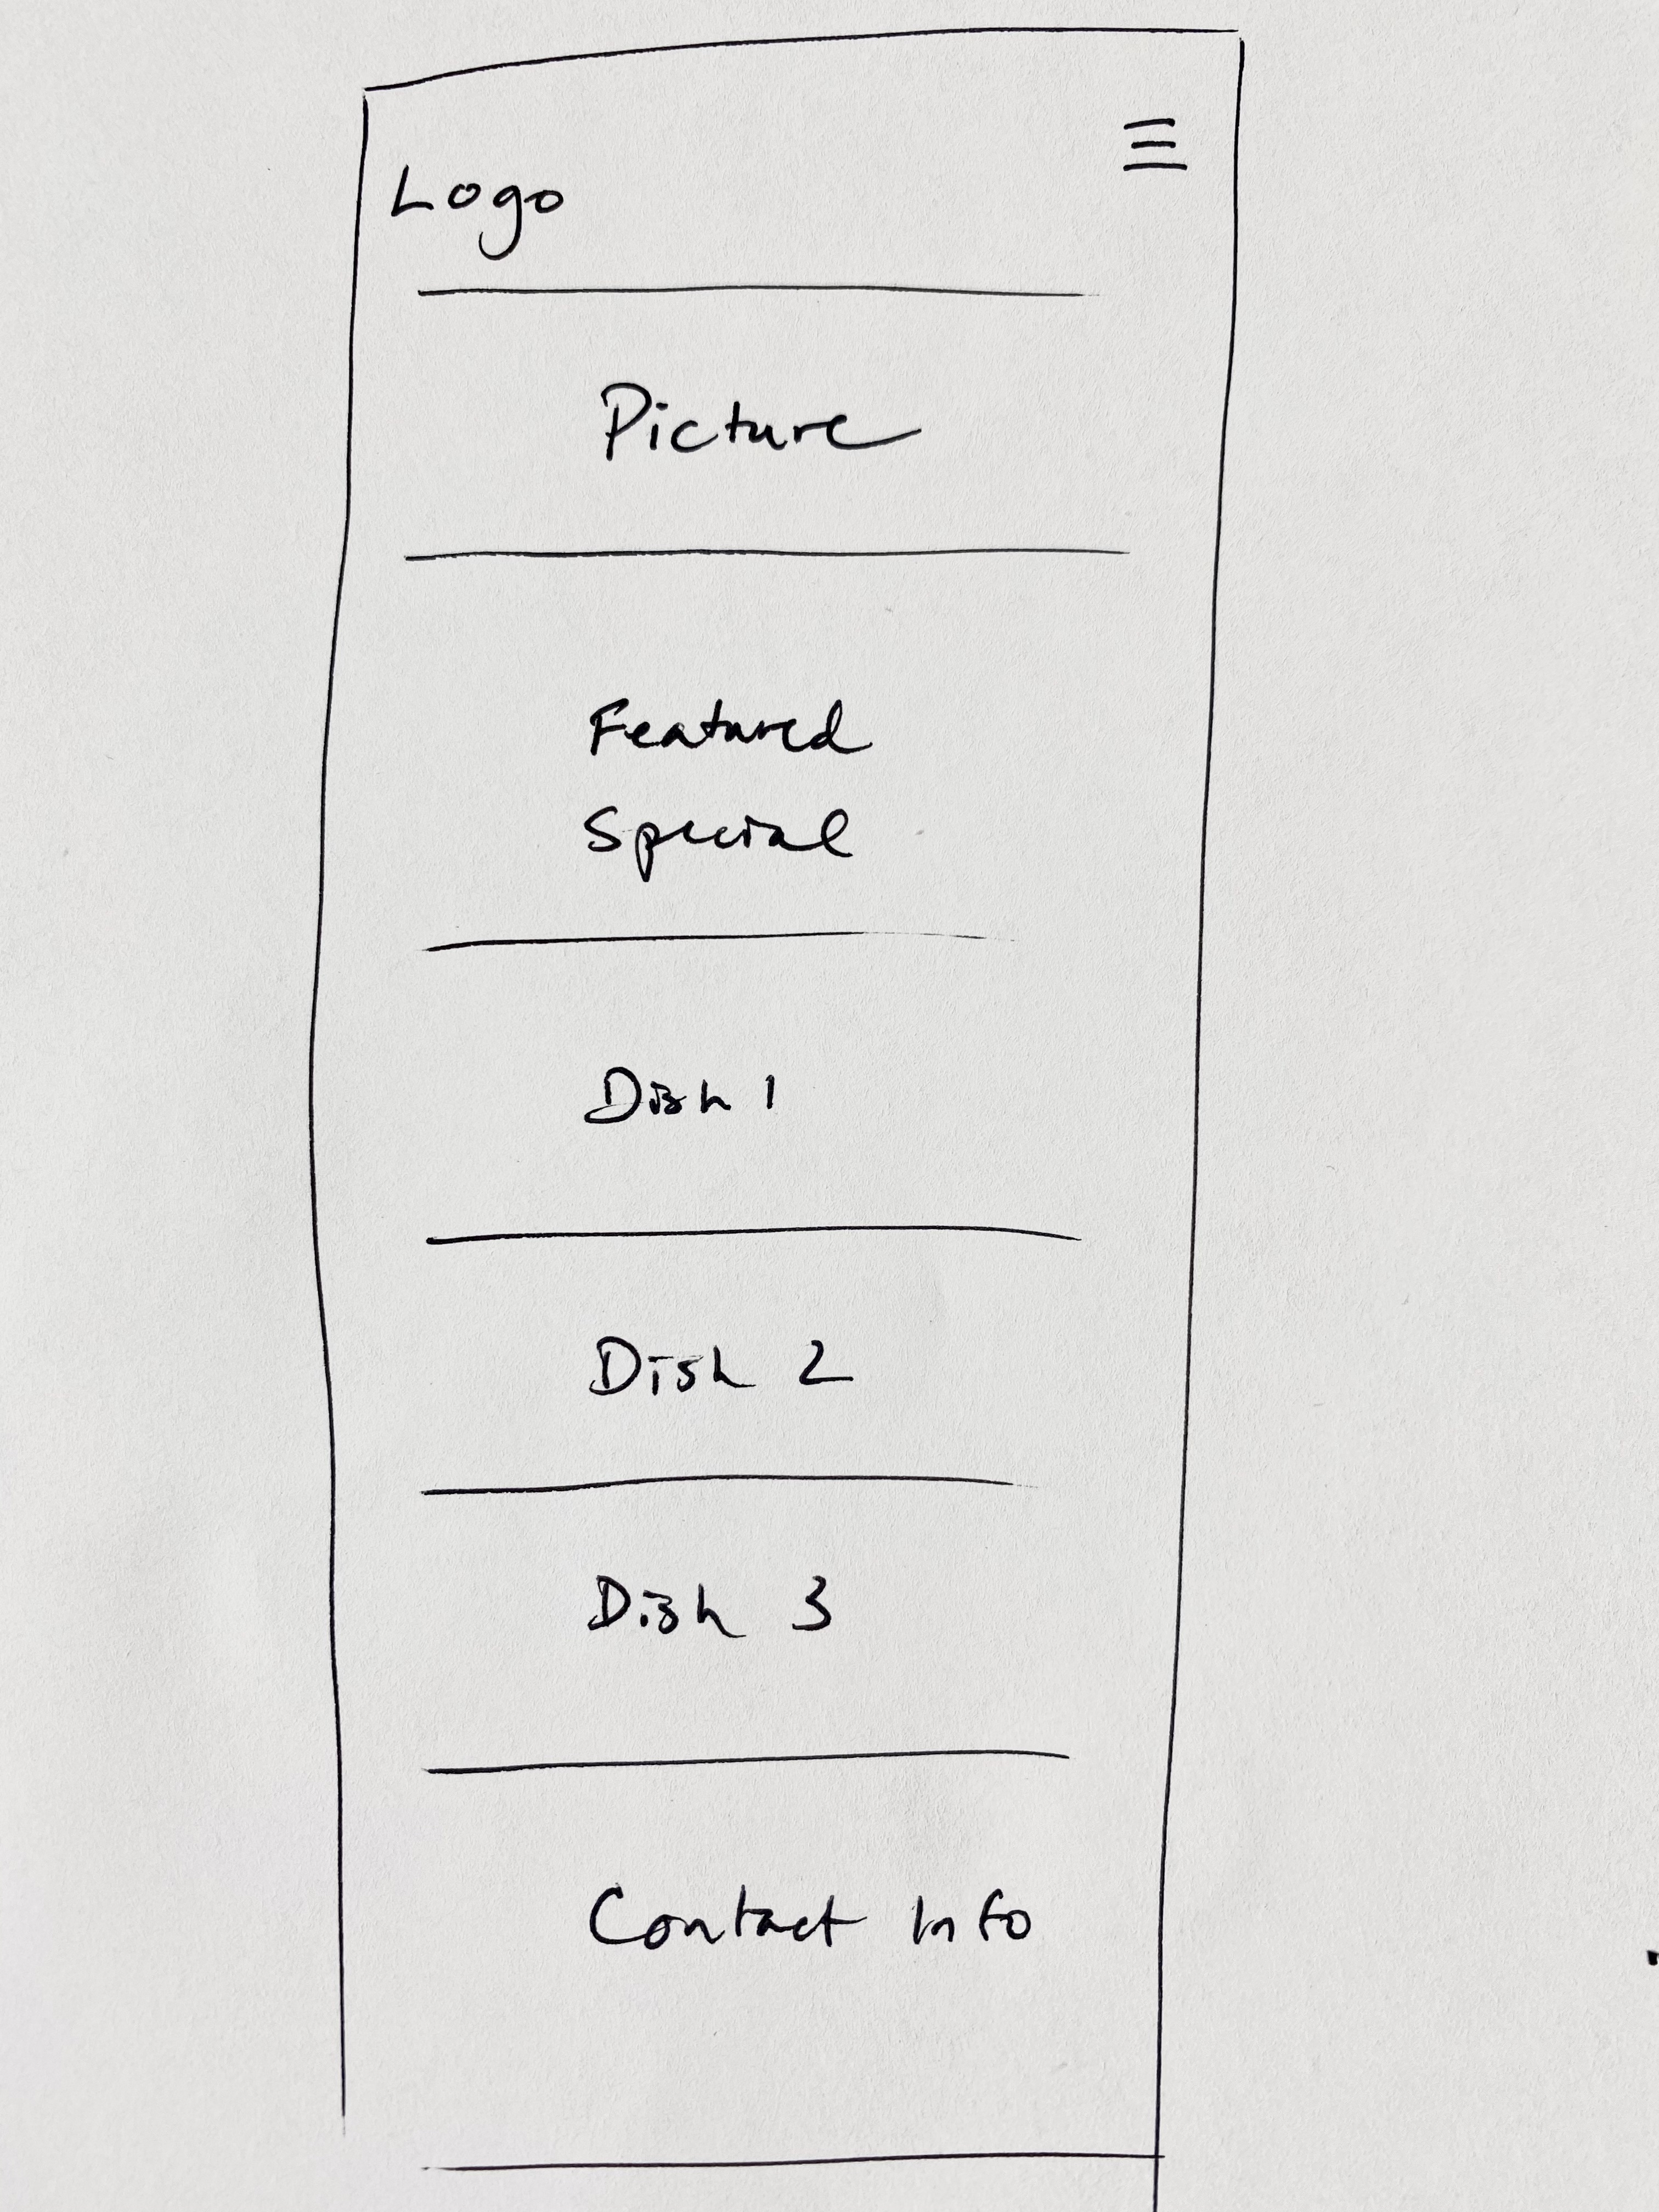 Logo
Picture
Featured
Special
Dish 1
Dish 2
Dish 3
Contact Info